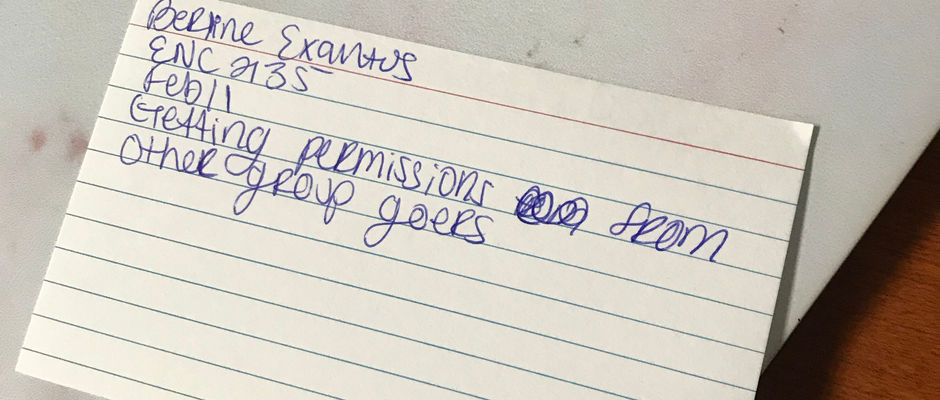 Berline Exantus
ENC 2135
Feb 11
Getting permissions from
Other group goers